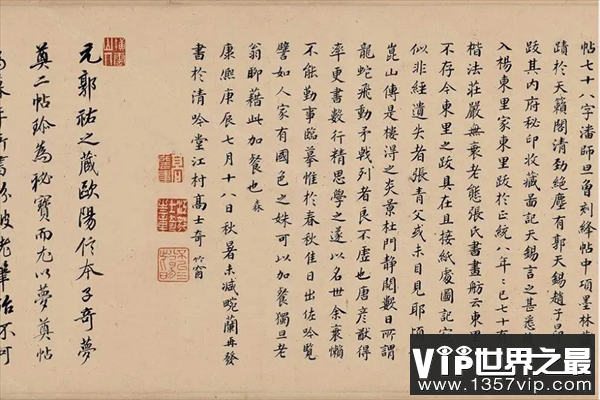 帖七十八字潘師旦曾刻絳帖中項墨林
蹟於天籟閣清勁絕塵有郭天錫趙子昂
跋其內府秘印收藏圖記天錫言之甚悉
入楊東里家東里跋於正統八年已七十
楷法莊嚴無衰老態張氏書畫舫云東里
不存今東里之跋具在且接紙處圖記宛
似非經遺失者張青父或未目見耶項
崑山傳是樓得之炎景杜門靜閱數日所謂
龍蛇飛動矛戟列者良不虛也唐彥猷得
率更書數行精思學之遂以名世余衰懶
不能勤事臨摹惟於春秋佳日出佐吟覽
譬如人家有國色之姝可以加餐獨旦老
翁聊藉此加餐也
康熙庚辰七月十八日秋暑未減畹蘭再發
書於清吟堂江村高士奇
竹窗
元郭祐之藏歐陽信本子奇夢
奠二帖珍為秘寶而尤以夢奠帖
VIP世界之最
www.1357vip.com